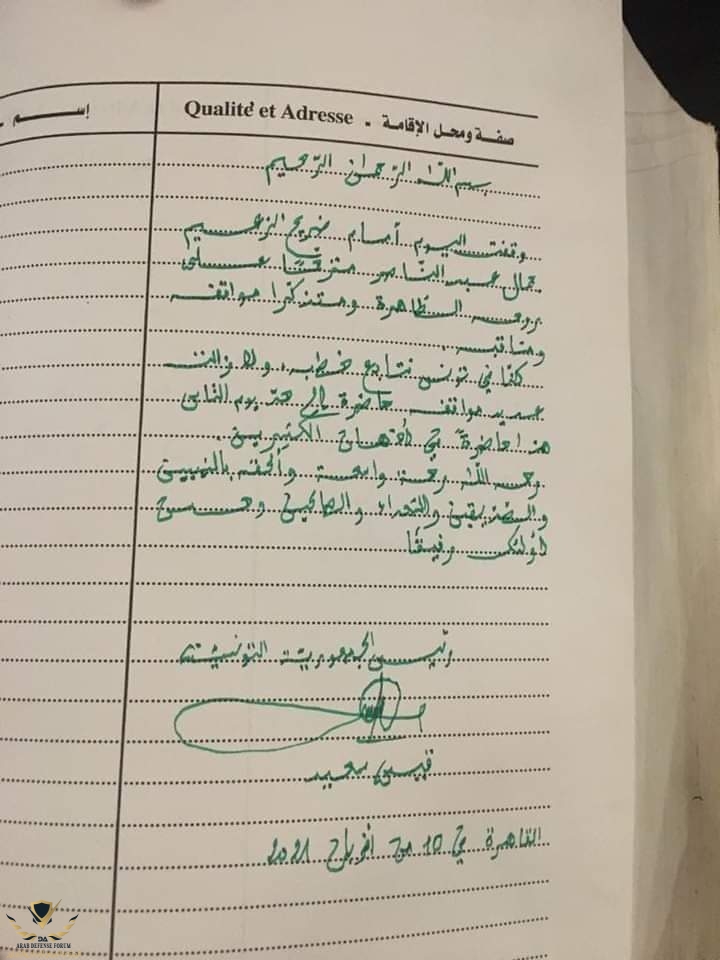 إسم -
Qualité et Adresse - صفة ومحل الإقامة
بسم اللّه الرّحمان الرّحيم
وقفت اليوم أمام ضريح الزعيم
جمال عبد النّاصر مترحّمًا على
روحه الطّاهرة ومتذكّرا مواقفه
ومناقبه.
كنّا في تونس نتابع خطبه، ولا زالت
عديد مواقفه حاضرة إلى حدّ يوم النّاس
هذا حاضرة في أذهان الكثيرين.
رحمه اللّه رحمة واسعة وألحقه بالنبيين
والصّدّيقين والشهداء والصالحين وحسن
أولئك رفيقًا
رئيس الجمهورية التونسيّة
قيس سعيد
القاهرة في 10 من أفريل 2021
DA
ARAB DEFENSE FORUM